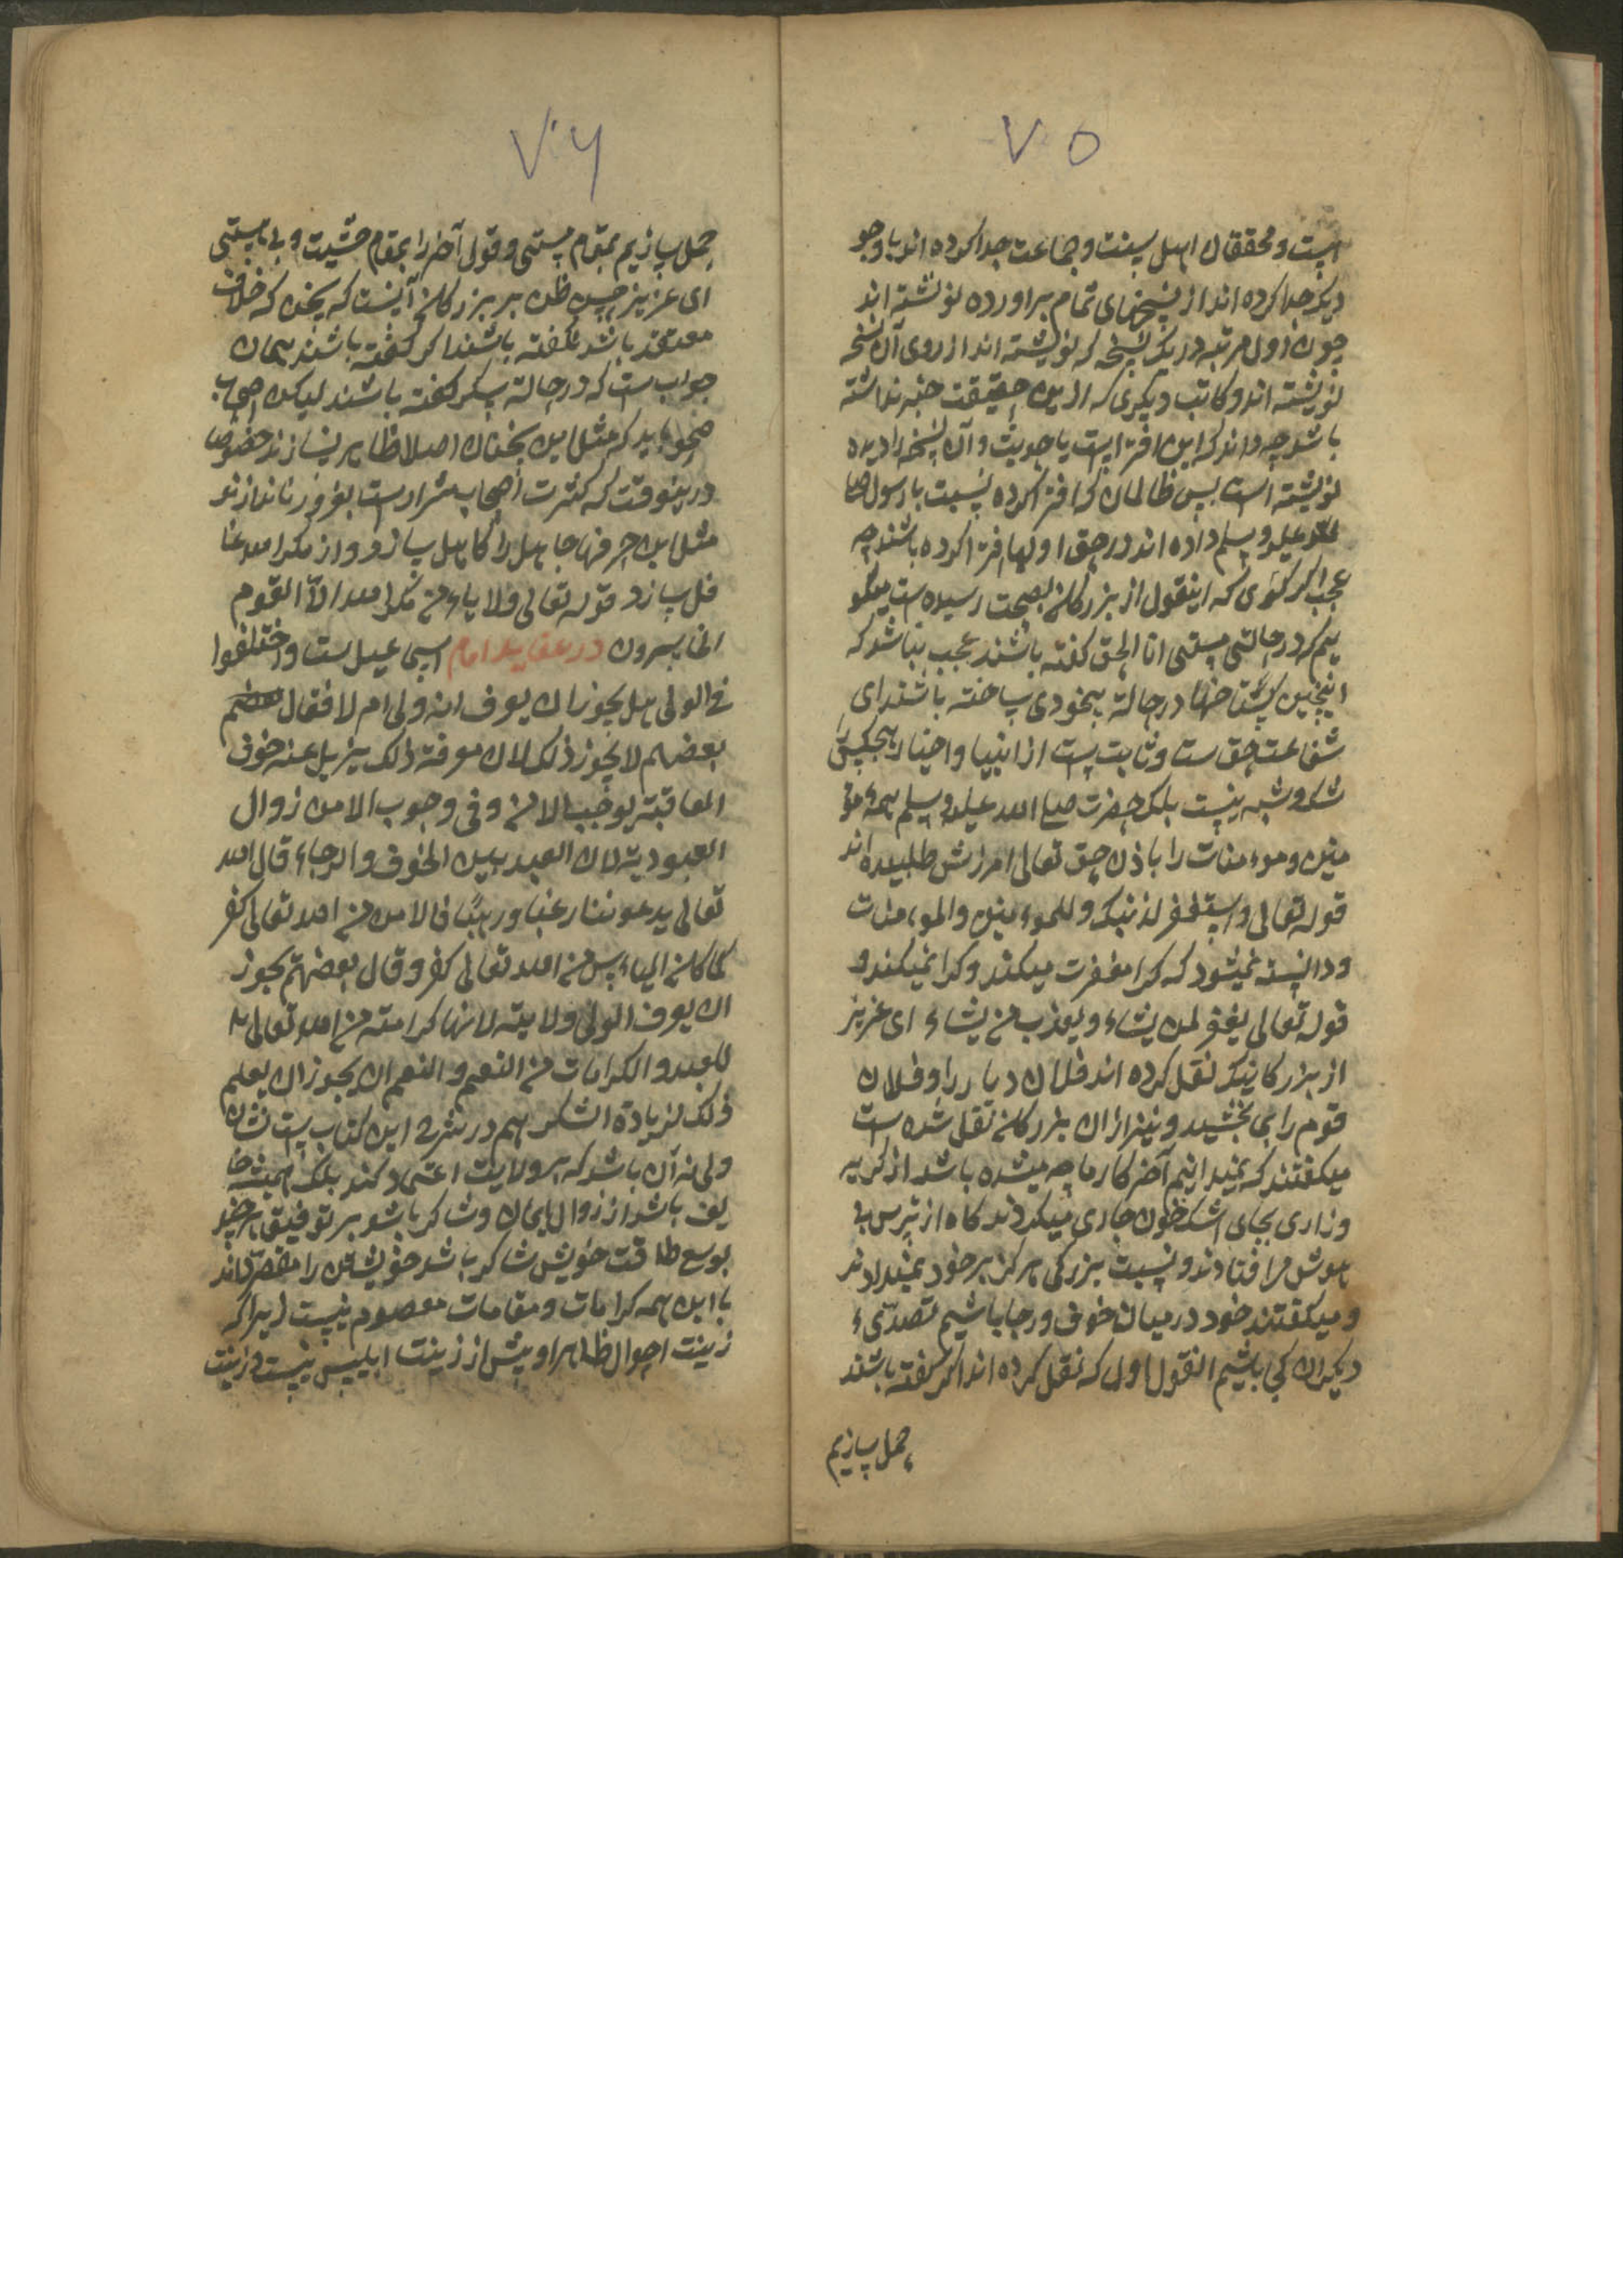 ۷۰۵
است و محققان اهل سنت و جماعت جدا کرده اند با وجو
دیکر جدا کرده اند از نسخهای تمام براورده نوشته اند
چون اول مرتبه در یک نسخه که نوشته اند از روی آن نسخه
نوشته اند و کاتب دیکری که ازین حقیقت خبر نداشته
باشد چه داند که این افترا است یا حدیث و آن نسخه را دیده
نوشته است پس ظالمان که افترا کرده نسبت با رسول صلی
الله علیه و سلم داده اند در حق اولیا افترا کرده باشند چه
عجب اکر کوی که اینقول از بزرکانی بصحت رسیده است میکو
یم که در حالتی مستی انا الحق کفته باشند عجب نباشد که
اینچنین کستاخها در حالة بیخودی ساخته باشند ای
شفاعت حق ست و ثابت ست از انبیا و اخیار هیچکس را
شک و شبه نیست بلکه حضرت صلی الله علیه و سلم همه مو
منین و موءمنات را باذن حق تعالی امرزش طلبیده اند
قوله تعالی واستغفر لذنبک وللموءمنین والموءمنات
و دانسته نمیشود که کرا مغفرت میکند و کرا نمیکند و
قوله تعالی یغفر لمن یشاء ویعذب من یشاء ای عزیز
از بزرکانیکه نقل کرده اند فلان دیار را و فلان
قوم را می بخشید و نیز از ان بزرکانی نقل شده ست
میکفتند که نمیدانیم آخر کار ما چه میشده باشد از کریه
و زاری بجای اشک خون جاری میکردند کاه از ترس بی
هوش مرا فتادند و نسبت بزرکی هرکز بر خود نمیدادند
و میکفتند خود در میان خوف و رجا باشیم تصدیء
دیکران کی باشیم انقول اول که نقل کرده اند اکر کفته باشند
حمل سازیم
۷۰۶
حمل سازیم بمقام مستی و قول آخر را بمقام خشیت و بی مستی
ای عزیز حسن ظن بر بزرکانی آنست که سخن که خلاف
معتقد باشد نکفته باشند اکر کفته باشند همان
جواب ست که در حالة سکر کفته باشند لیکن اصحاب
صحو باید که مثل این سخنان اصلا ظاهر نسازند خصوصا
درینوقت که کثرت اصحاب شرارست بغرور نه اندازند
مثل این حرفها جاهل را کاهل سازد و از مکر الله غا
فل سازد قوله تعالی فلا یاءمن مکر الله الا القوم
الخاسرون در عقاید امام اسماعیل ست واختلفوا
فی الولی هل یجوز ان یعرف انه ولی ام لا فقال
بعضهم لا یجوز ذلک لان معرفة ذلک یزیل عنه خوف
العاقبة یوجب الامن و فی وجوب الامن زوال
العبودیة لان العبد بین الخوف والرجاء قال الله
تعالی یدعوننا رغبا ورهبا فالامن من الله تعالی کفر
کما کان الیاءس من الله تعالی کفر وقال بعضهم یجوز
ان یعرف الولی ولایته لانها کرامته من الله تعالی
للعبد والکرامات من النعم والنعم ان یجوز ان یعلم
ذلک لزیادة الشکر هم در شرح این کتاب ست نشان
ولی نه آن باشد که بر ولایت اعتماد کند بلکه همیشه خا
یف باشد از زوال ایمان و شاکر باشد بر توفیق هر چند
بوسع طاقت خویش شاکر باشد خویشتن را مقصر داند
با این همه کرامات و مقامات معصوم نیست زیرا که
زینت احوال ظاهر او بیش از زینت ابلیس نیست زینت